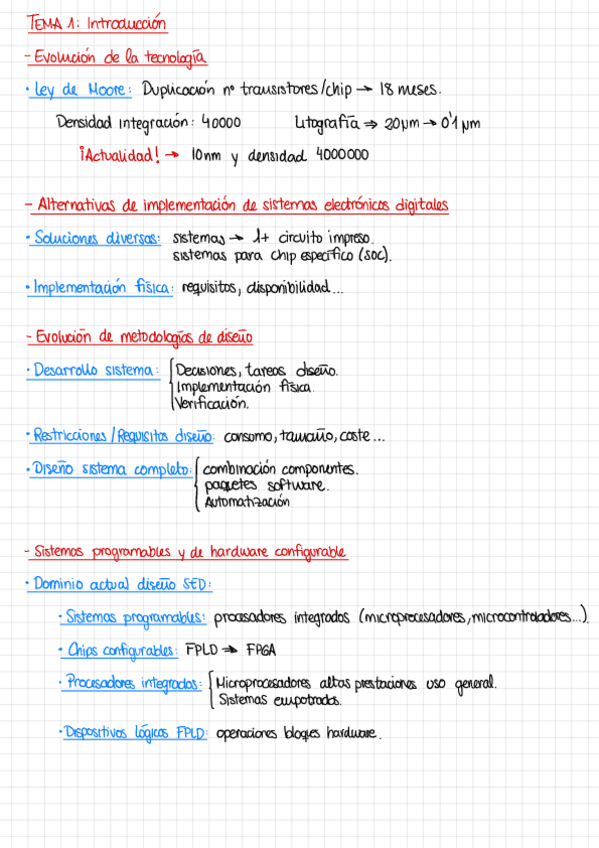 TEMA 1: Introducción
- Evolución de la tecnología
· Ley de Moore: Duplicación nº transistores/chip → 18 meses.
Densidad integración: 40000 Litografía ⇒ 20μm → 0'1 μm
¡Actualidad! → 10nm y densidad 4000000
- Alternativas de implementación de sistemas electrónicos digitales
· Soluciones diversas: sistemas → 1+ circuito impreso.
sistemas para chip específico (SOC).
· Implementación física: requisitos, disponibilidad...
- Evolución de metodologías de diseño
· Desarrollo sistema: Decisiones, tareas diseño.
Implementación física.
Verificación.
· Restricciones/Requisitos diseño: consumo, tamaño, coste...
· Diseño sistema completo: combinación componentes.
paquetes software.
Automatización
- Sistemas programables y de hardware configurable
· Dominio actual diseño SED:
· Sistemas programables: procesadores integrados (microprocesadores, microcontroladores...).
· Chips configurables: FPLD → FPGA
· Procesadores integrados: Microprocesadores altas prestaciones uso general.
Sistemas empotrados.
· Dispositivos lógicos FPLD: operaciones bloques hardware.